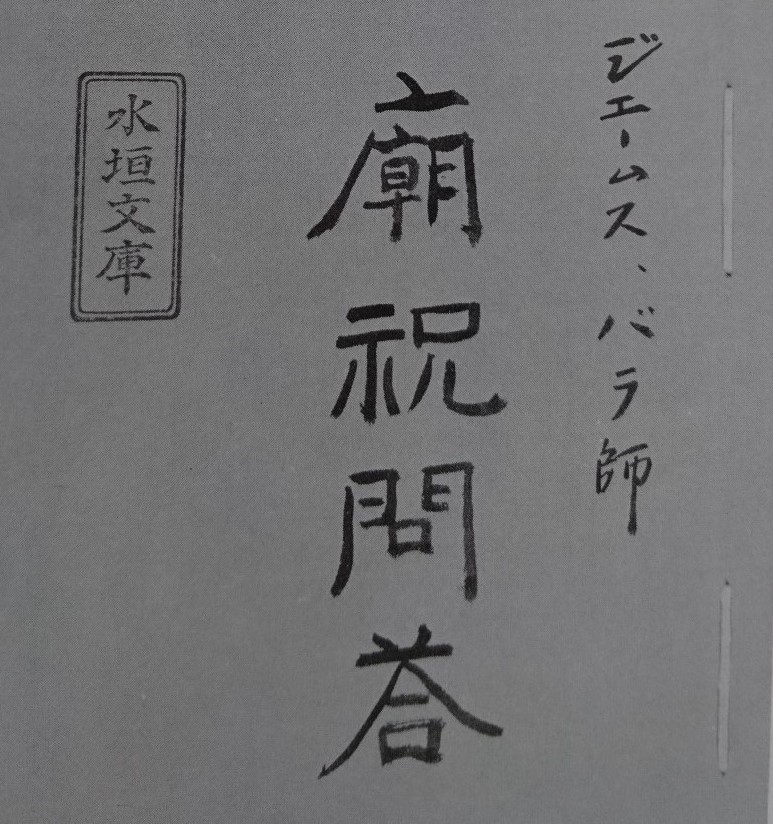 ジエームス、バラ師
廟祝問荅
水垣文庫